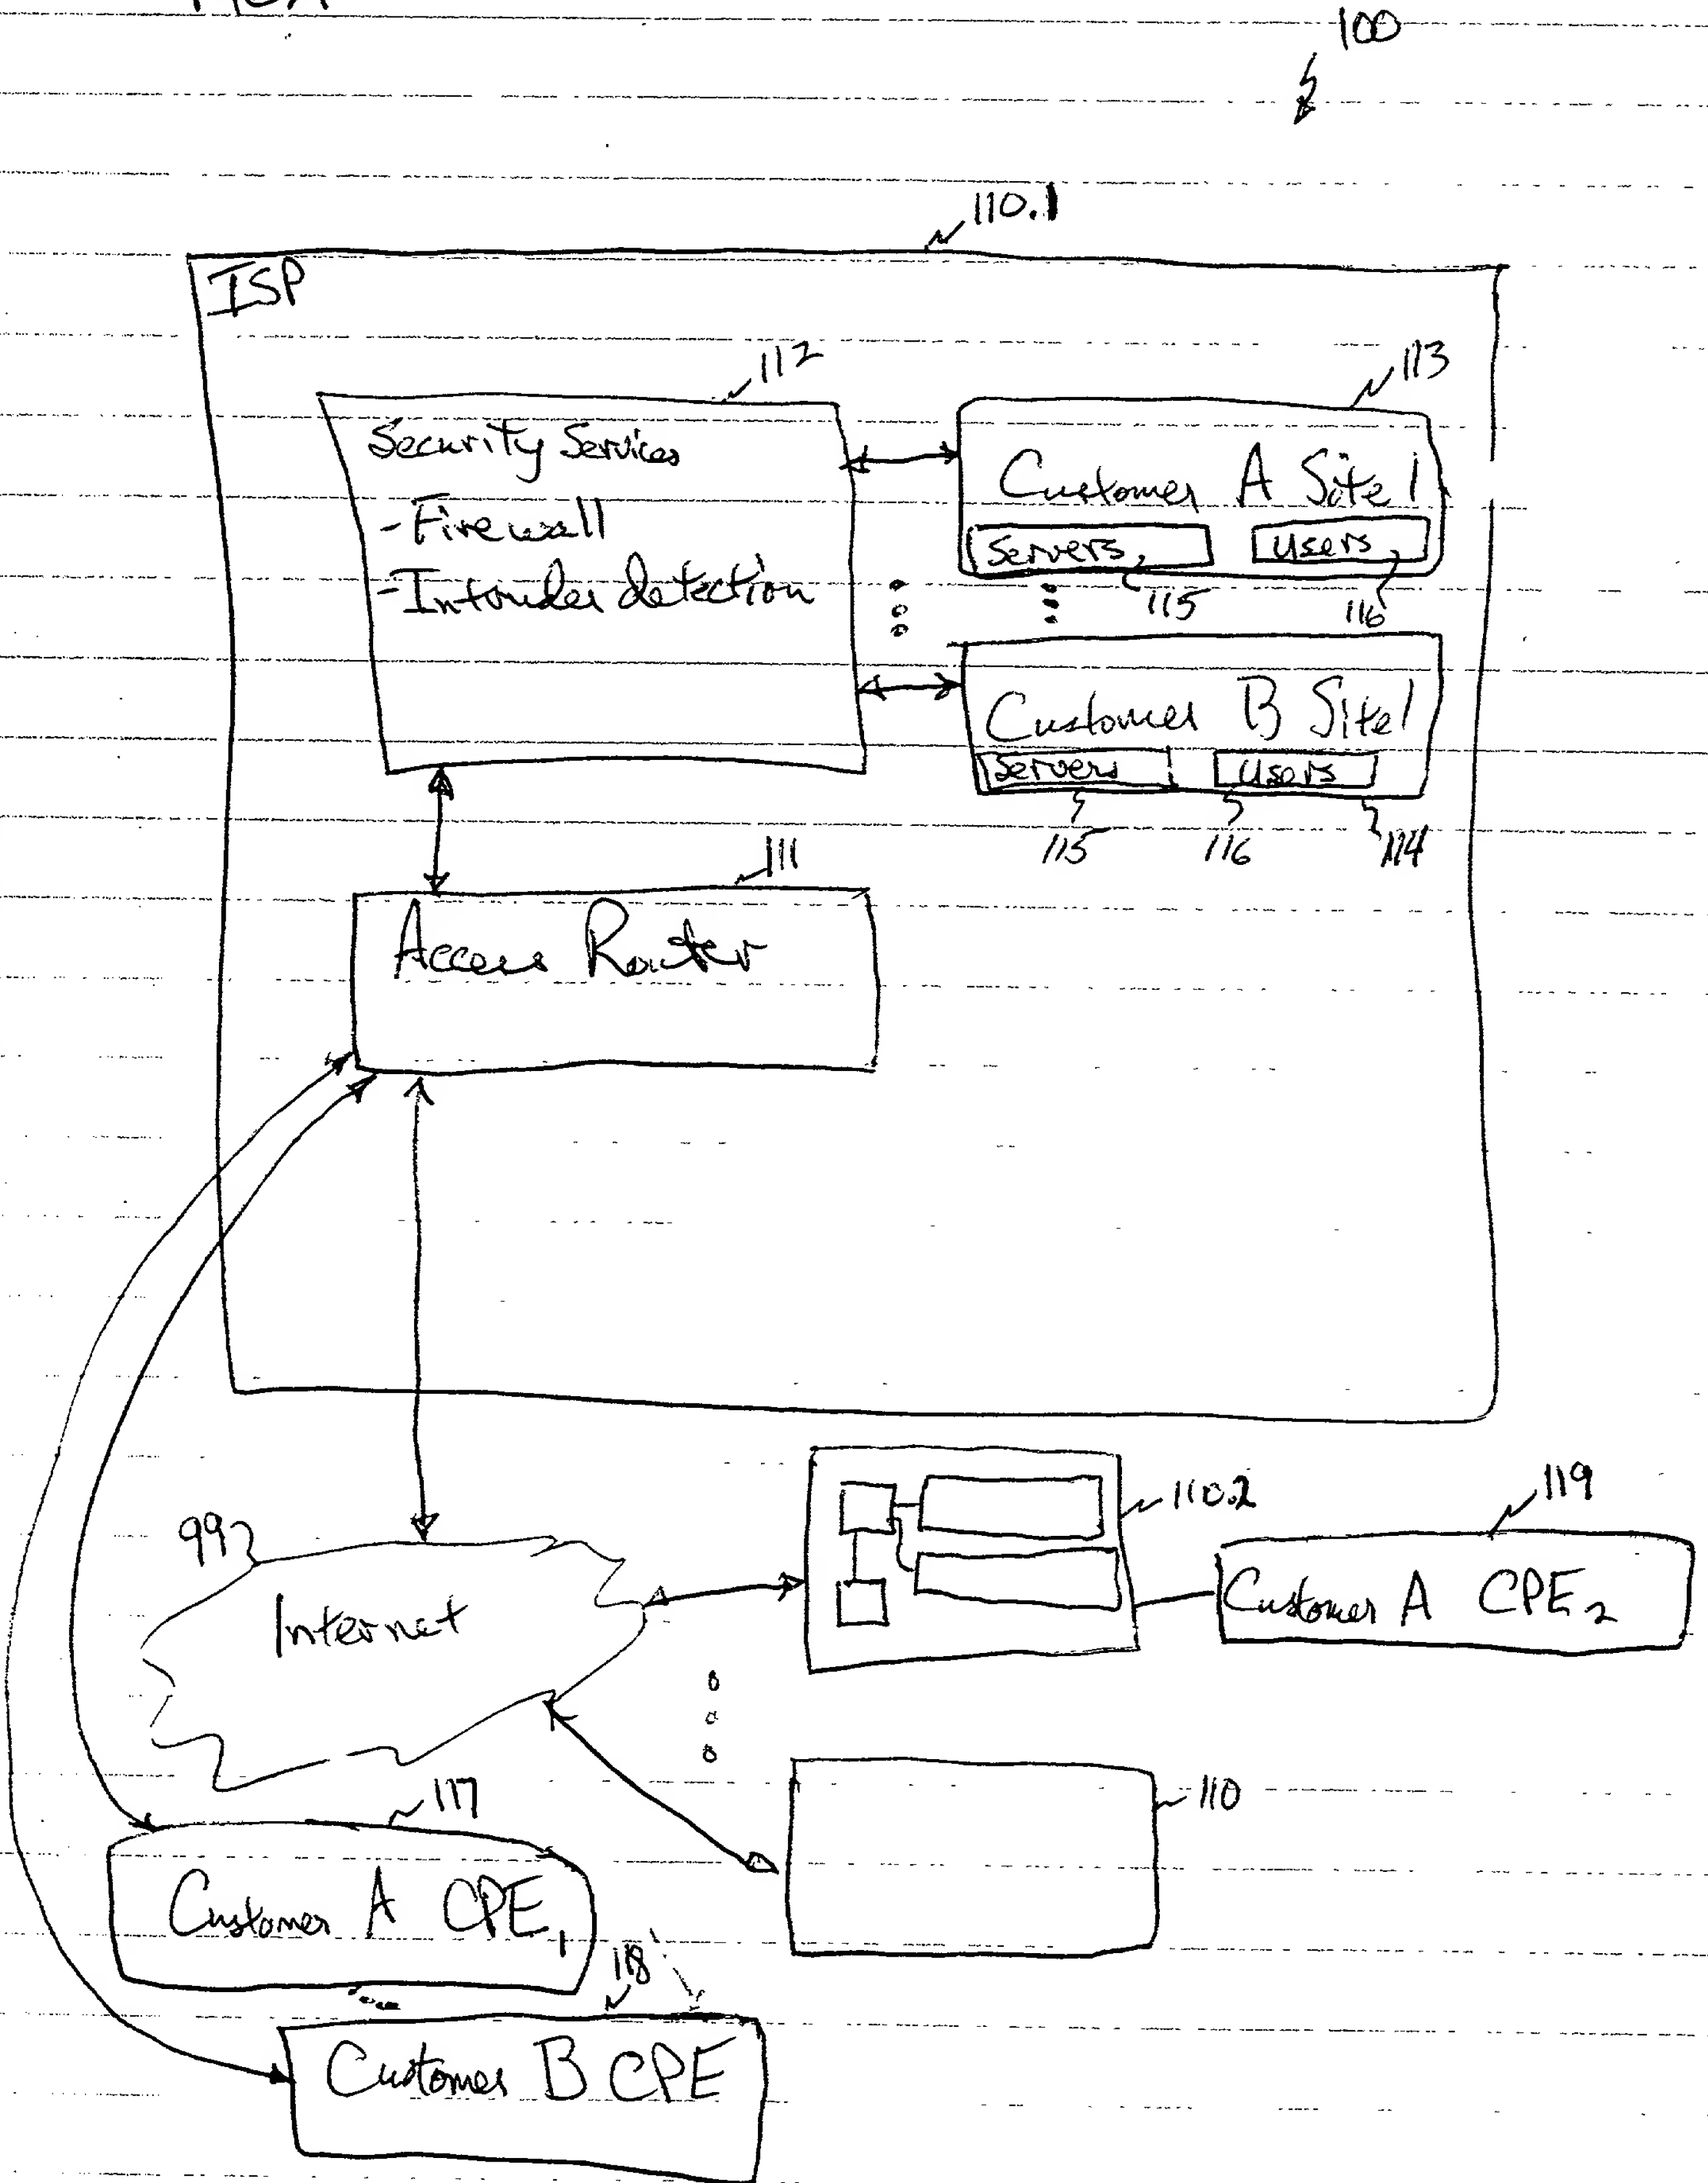 100
110.1
ISP
112
113
Security Services
- Firewall
- Intruder detection
Customer A Site 1
Servers
Users
115
116
Customer B Site 1
Servers
Users
115
116
114
111
Access Router
99
Internet
110.2
119
Customer A CPE2
110
117
Customer A CPE1
118
Customer B CPE